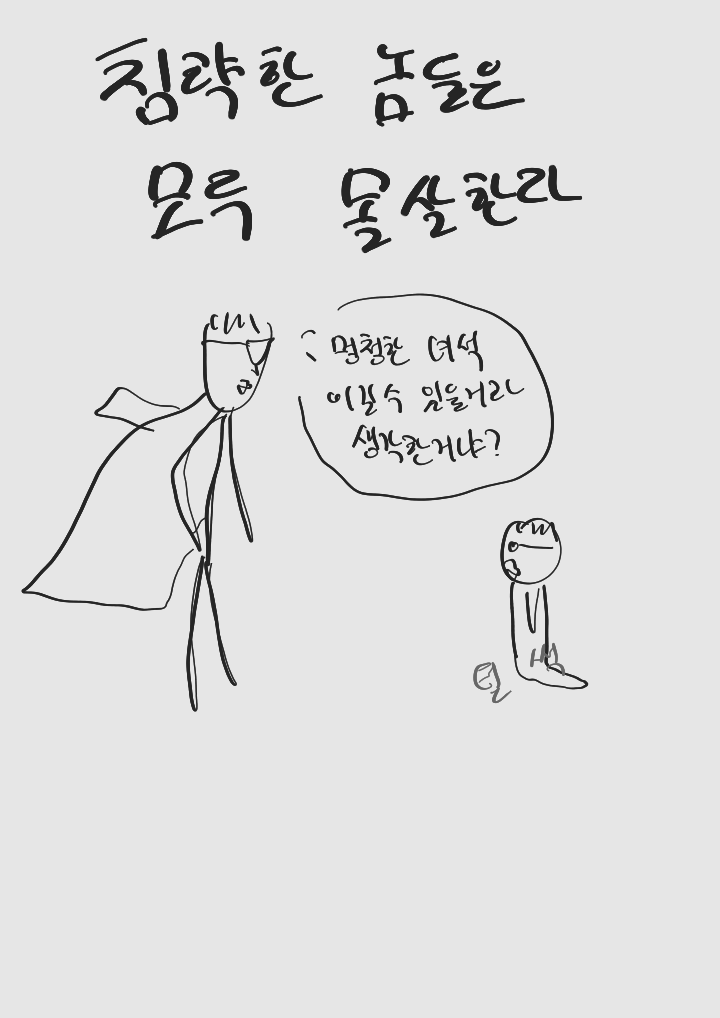 침략한 놈들은
모두 몰살한라
멍청한 녀석
이길수 있을거라
생각한거냐?
털
썩